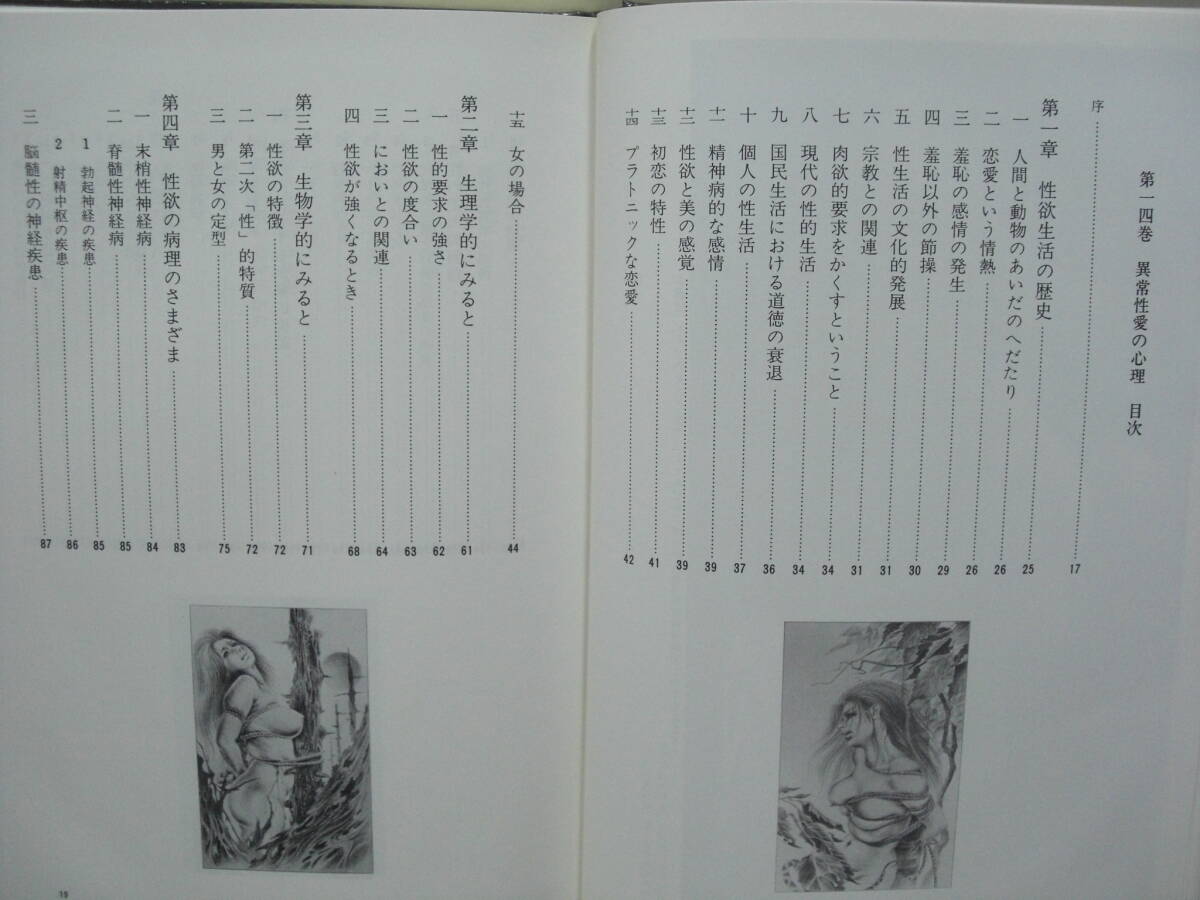 第一四巻　異常性愛の心理　目次
序 17
第一章　性欲生活の歴史 25
一　人間と動物のあいだのへだたり 26
二　恋愛という情熱 26
三　羞恥の感情の発生 29
四　羞恥以外の節操 30
五　性生活の文化的発展 31
六　宗教との関連 31
七　肉欲的要求をかくすということ 34
八　現代の性的生活 34
九　国民生活における道徳の衰退 36
十　個人の性生活 37
十一　精神病的な感情 39
十二　性欲と美の感覚 39
十三　初恋の特性 41
十四　プラトニックな恋愛 42
十五　女の場合 44
第二章　生理学的にみると 61
一　性的要求の強さ 62
二　性欲の度合い 63
三　においとの関連 64
四　性欲が強くなるとき 68
第三章　生物学的にみると 71
一　性欲の特徴 72
二　第二次「性」的特質 72
三　男と女の定型 75
第四章　性欲の病理のさまざま 83
一　末梢性神経病 84
二　脊髄性神経病 85
1　勃起神経の疾患 85
2　射精中枢の疾患 86
三　脳髄性の神経疾患 87
19